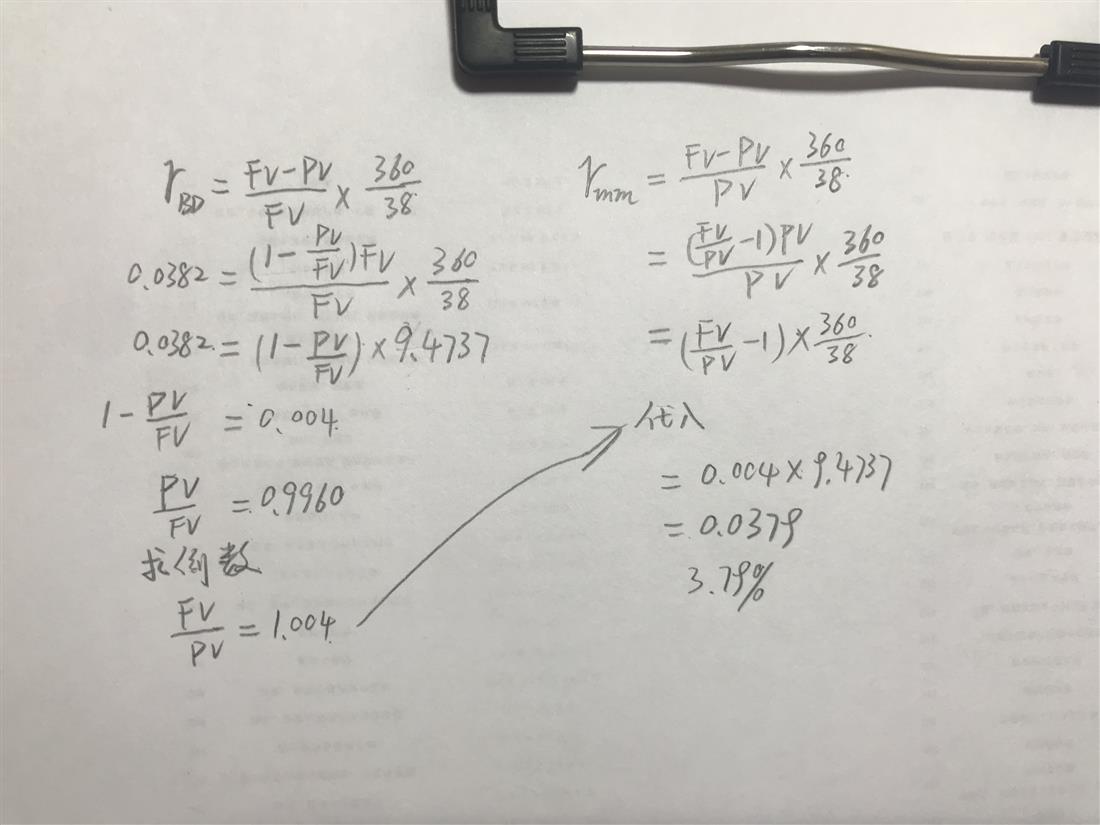 r_BD = (FV-PV)/FV × 360/38
0.0382 = (1-PV/FV)FV/FV × 360/38
0.0382 = (1-PV/FV) × 9.4737
1-PV/FV = 0.004
PV/FV = 0.9960
求倒数
FV/PV = 1.004
r_mm = (FV-PV)/PV × 360/38
= (FV/PV-1)PV/PV × 360/38
= (FV/PV-1) × 360/38
代入
= 0.004 × 9.4737
= 0.0379
3.79%